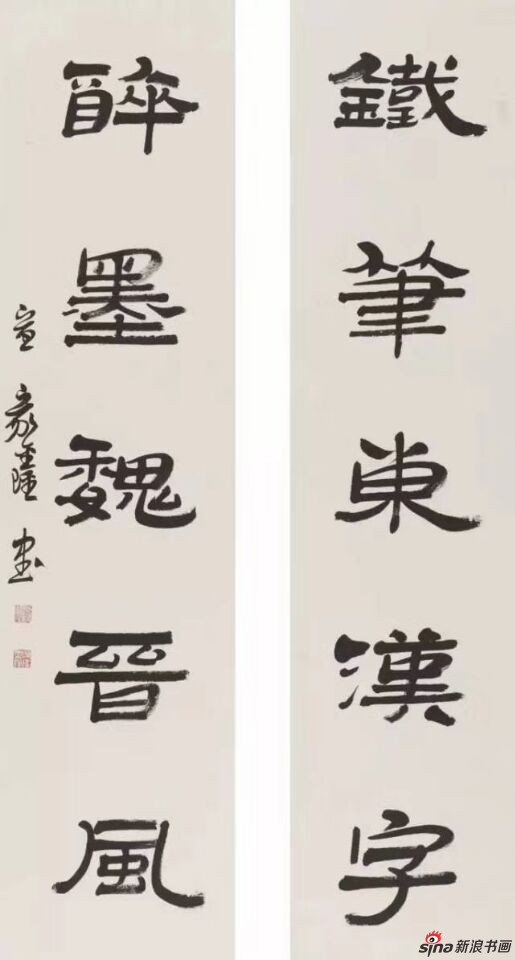 鐵筆東漢字
醉墨魏晉風
宣家鑫隆書
sina新浪书画